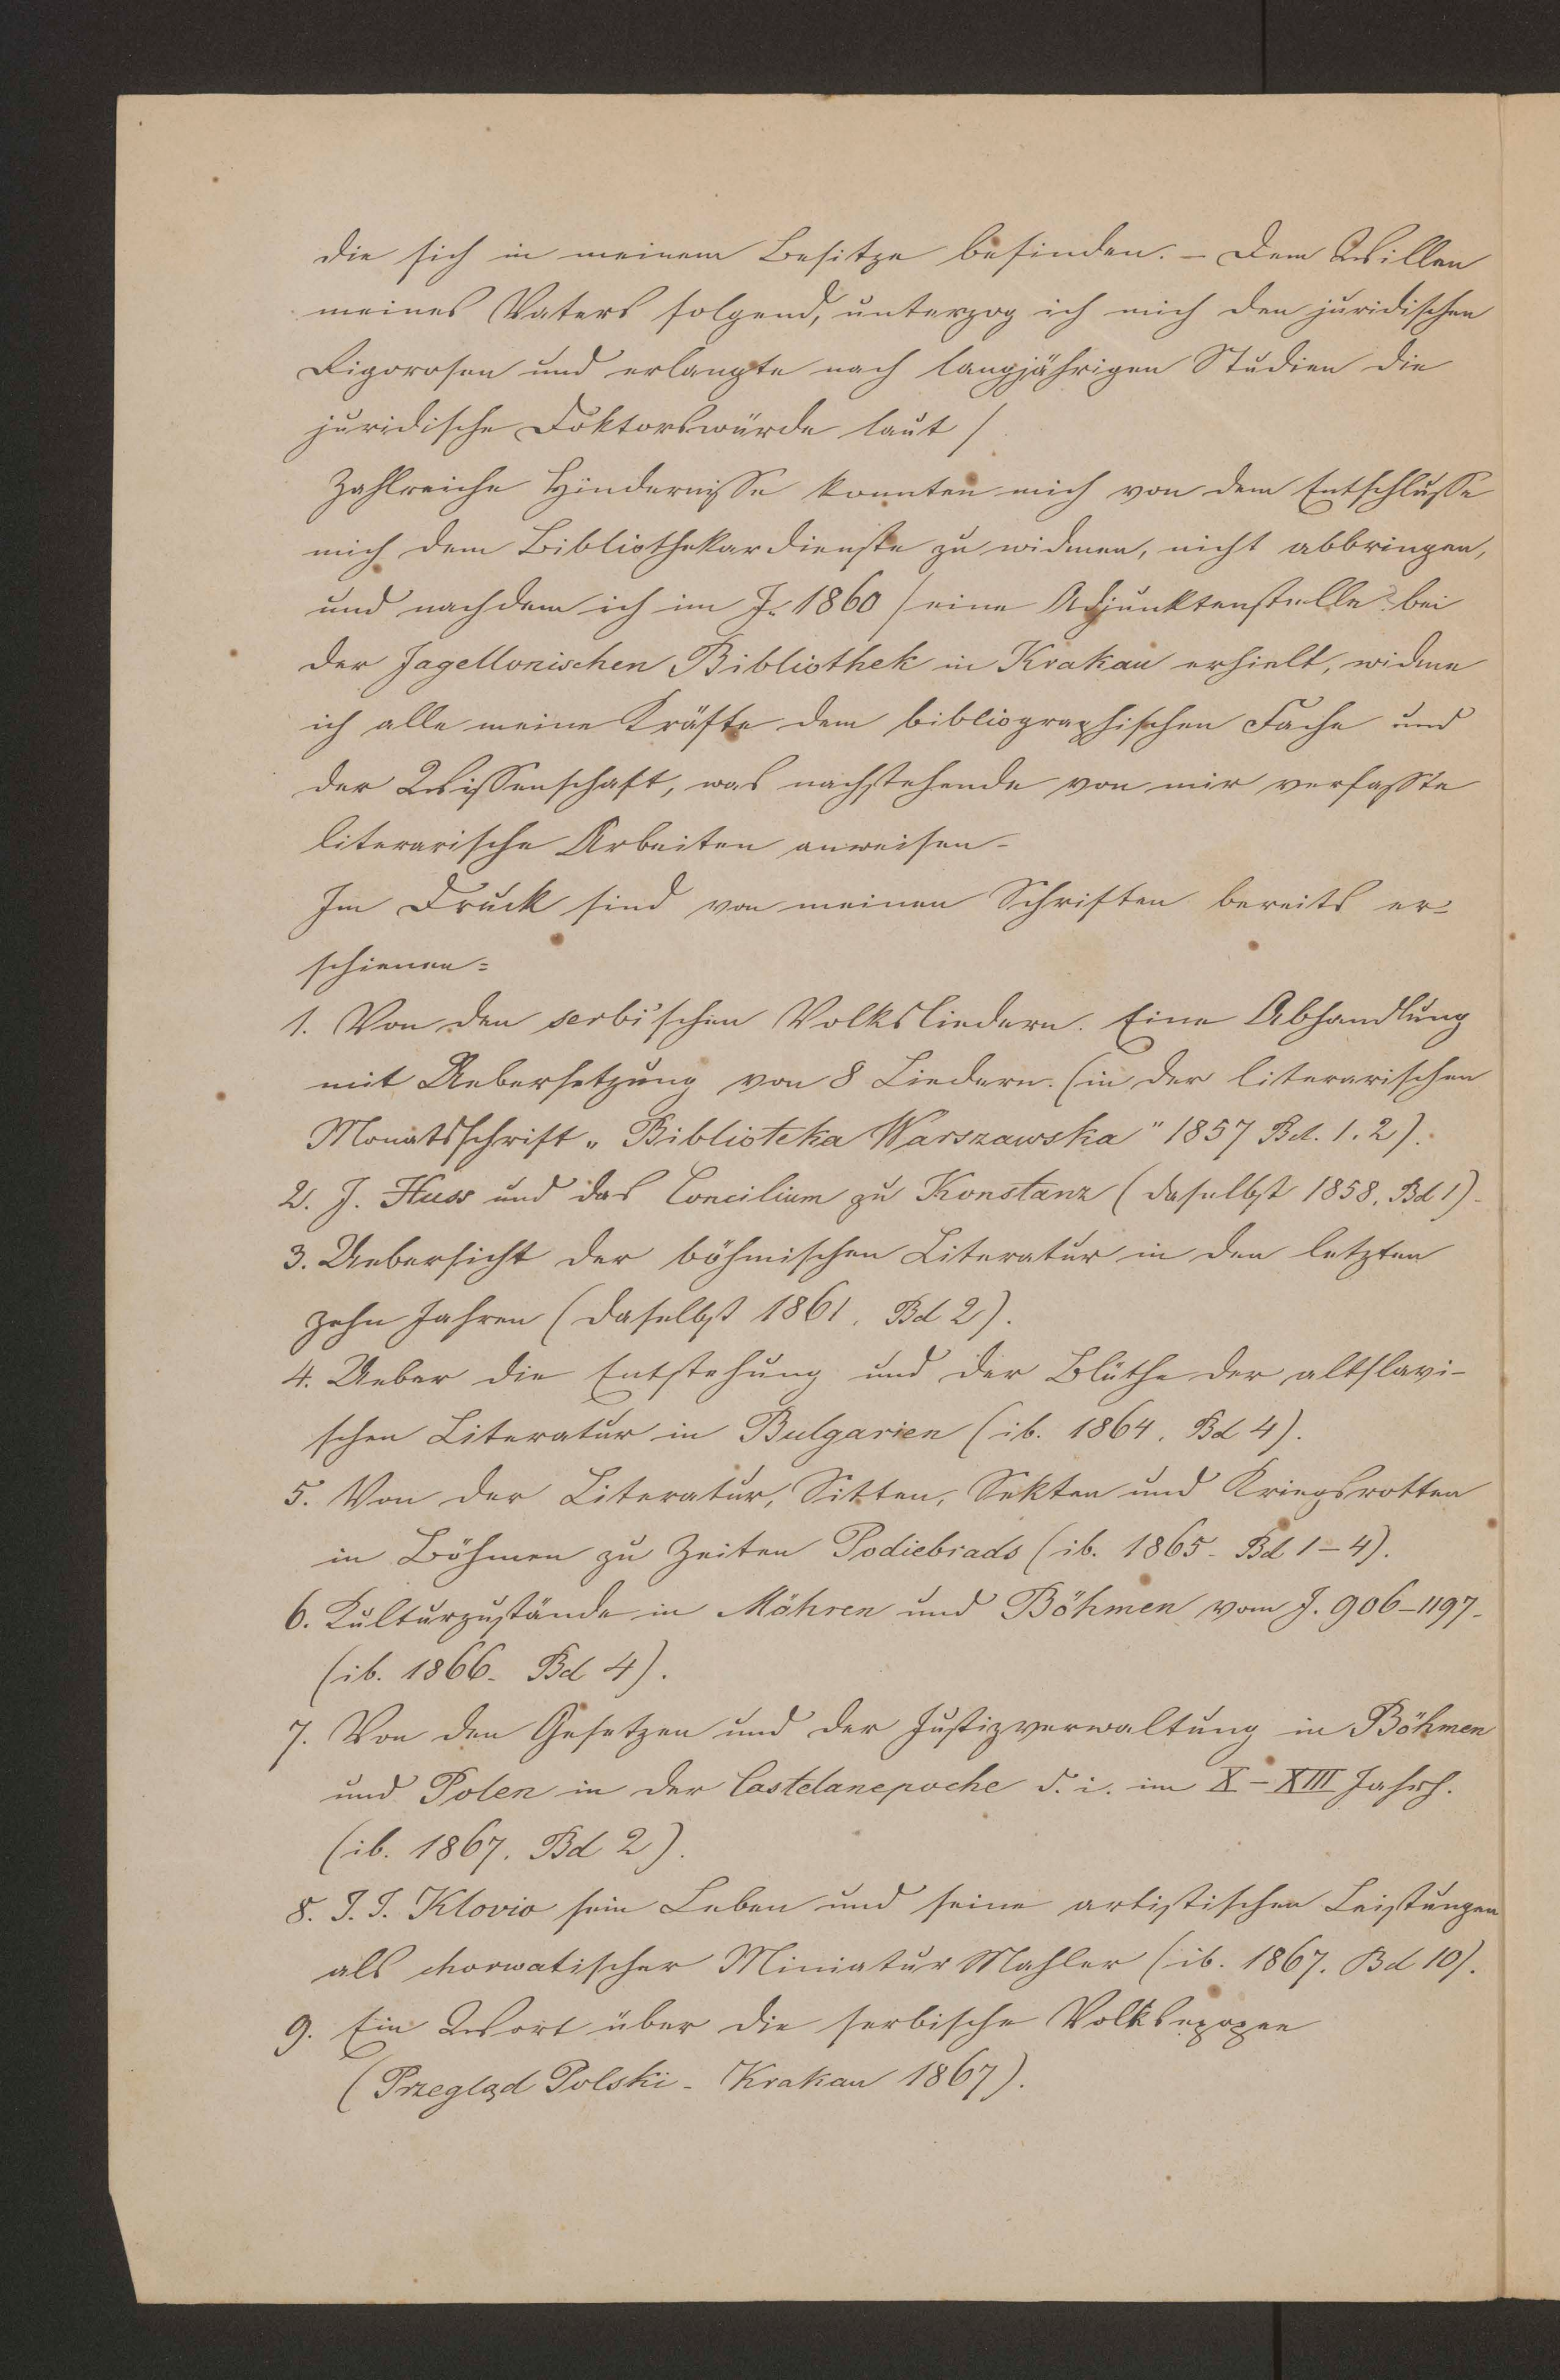 die sich in meinem Besitze befinden. – Dem Willen
meines Vaters folgend, unterzog ich mich den juridischen
Rigorosen und erlangte nach langjährigen Studien die
juridische Doktorswürde laut /
Zahlreiche Hindernisse konnten mich von dem Entschlusse
mich dem Bibliothekardienste zu widmen, nicht abbringen,
und nachdem ich im J. 1860 / eine Adjunktenstelle bei
der Jagellonischen Bibliothek in Krakau erhielt, widme
ich alle meine Kräfte dem bibliographischen Fache und
der Wissenschaft, was nachstehende von mir verfasste
literarische Arbeiten anweisen.
Im Druck sind von meinen Schriften bereits er-
schienen:
1. Von den serbischen Volksliedern. Eine Abhandlung
mit Uebersetzung von 8 Liedern. (in der literarischen
Monatsschrift „Biblioteka Warszawska" 1857 Bd. 1. 2).
2. J. Huss und das Concilium zu Konstanz (daselbst 1858. Bd 1).
3. Uebersicht der böhmischen Literatur in den letzten
zehn Jahren (daselbst 1861. Bd 2).
4. Ueber die Entstehung und der Blüthe der altslavi-
schen Literatur in Bulgarien (ib. 1864. Bd 4).
5. Von der Literatur, Sitten, Sekten und Kriegsrotten
in Böhmen zu Zeiten Podiebrads (ib. 1865. Bd 1–4).
6. Kulturzustände in Mähren und Böhmen vom J. 906–1197.
(ib. 1866. Bd 4).
7. Von den Gesetzen und der Justizverwaltung in Böhmen
und Polen in der Castelanepoche d. i. im X–XIII Jahrh.
(ib. 1867. Bd 2).
8. J. J. Klovio sein Leben und seine artistischen Leistungen
als chorwatischer Miniatur Mahler (ib. 1867. Bd 10).
9. Ein Wort über die serbische Volksepopee
(Przegląd Polski – Krakau 1867).